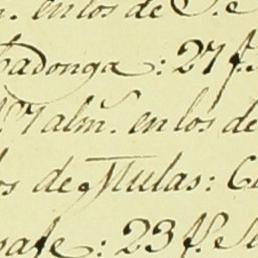 en los de S. e
adonga: 27 f.
Talm. en los de
os de Mulas: C
safe: 23 f. e